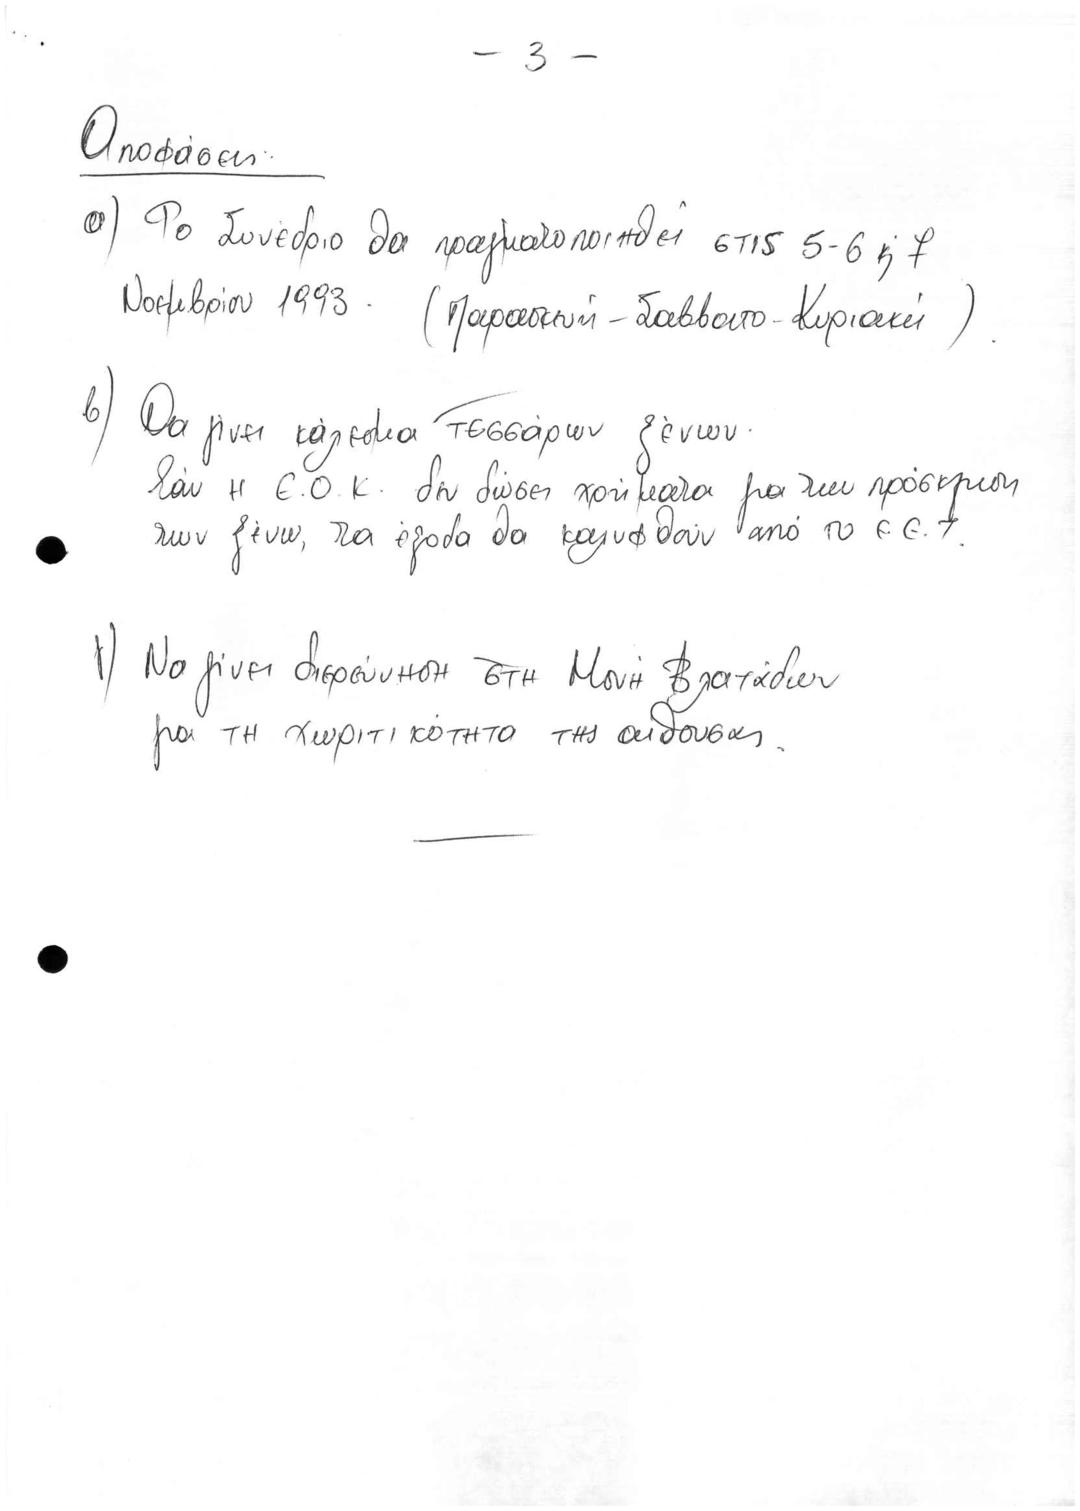 - 3 -
Αποφάσεις.
α) Το Συνέδριο θα πραγματοποιηθεί στις 5-6 ή 7
Νοεμβρίου 1993. (Παρασκευή - Σάββατο - Κυριακή).
β) Θα γίνει κάλεσμα τεσσάρων ξένων.
Εάν η Ε.Ο.Κ. δεν δώσει χρήματα για την πρόσκληση
των ξένων, τα έξοδα θα καλυφθούν από το Ε.Ε.Τ.
γ) Να γίνει διερεύνηση στη Μονή Βλατάδων
για τη χωριτικότητα της αίθουσας.